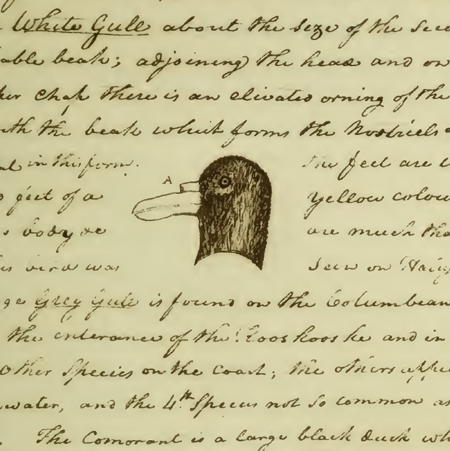 White Gull about the size of the Sec
able beak; adjoining the head and on
per Chap there is an elivated orning of the
with the beak which forms the Nostriels
in this form. The feet are
feet of a A yellow colou
body &c are much the
bird was Seen on Haiy
ge Grey Gull is found on the Columbean
the enterance of the Kooskooske and in
other Species on the coast; the others appe
water, and the 4th Species not so common as
The Comorant is a large black duck wh